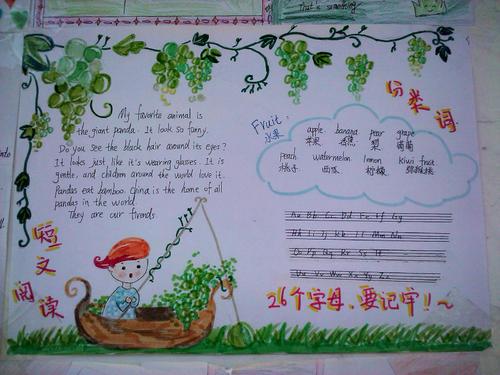 That's something
My favorite animal is
the giant panda. It look so funny.
Do you see the black hair around its eyes?
It looks just like it's wearing glasses. It is
gentle, and children around the world love it.
Pandas eat bamboo. China is the home of all
pandas in the world.
They are our firends.
短文
阅读
分类词
Fruit,
水果
apple banana pear grape
苹果 香蕉 梨 葡萄
peach watermelon lemon kiwi fruit
桃子 西瓜 柠檬 猕猴桃
Aa Bb Cc Dd Ee Ff Gg
Hh Ii Jj Kk Ll Mm Nn
Oo Pp Qq Rr Ss Tt
Uu Vv Ww Xx Yy Zz
26个字母、要记牢!~